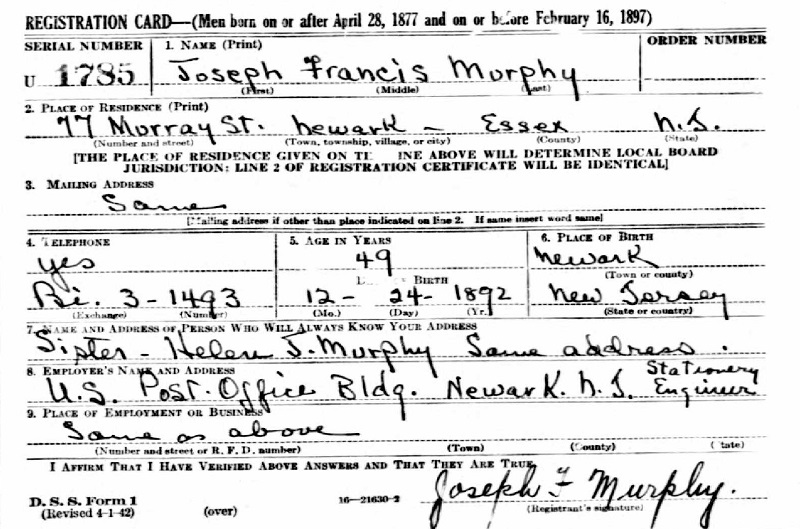 REGISTRATION CARD—(Men born on or after April 28, 1877 and on or before February 16, 1897)
SERIAL NUMBER 1. NAME (Print) ORDER NUMBER
U 1785 Joseph Francis Murphy
(First) (Middle) (Last)
2. PLACE OF RESIDENCE (Print)
77 Murray St. Newark - Essex N.J.
(Number and street) (Town, township, village, or city) (County) (State)
[THE PLACE OF RESIDENCE GIVEN ON INE ABOVE WILL DETERMINE LOCAL BOARD
JURISDICTION; LINE 2 OF REGISTRATION CERTIFICATE WILL BE IDENTICAL]
3. MAILING ADDRESS
Same
[Mailing address if other than place indicated on line 2. If same insert word same]
4. TELEPHONE 5. AGE IN YEARS 6. PLACE OF BIRTH
yes 49 Newark
BIRTH (Town or county)
Bi. 3-1493 12-24-1892 New Jersey
(Exchange) (Number) (Mo.) (Day) (Yr.) (State or country)
7. NAME AND ADDRESS OF PERSON WHO WILL ALWAYS KNOW YOUR ADDRESS
Sister - Helen J. Murphy Same address.
8. EMPLOYER'S NAME AND ADDRESS Stationery
U.S. Post-Office Bldg. Newark. N.J. Engineer
9. PLACE OF EMPLOYMENT OR BUSINESS
Same as above
(Number and street or R. F. D. number) (Town) (County) (State)
I AFFIRM THAT I HAVE VERIFIED ABOVE ANSWERS AND THAT THEY ARE TRUE
Joseph F Murphy.
D. S. S. Form 1 16—21630-2 (Registrant's signature)
(Revised 4-1-42) (over)